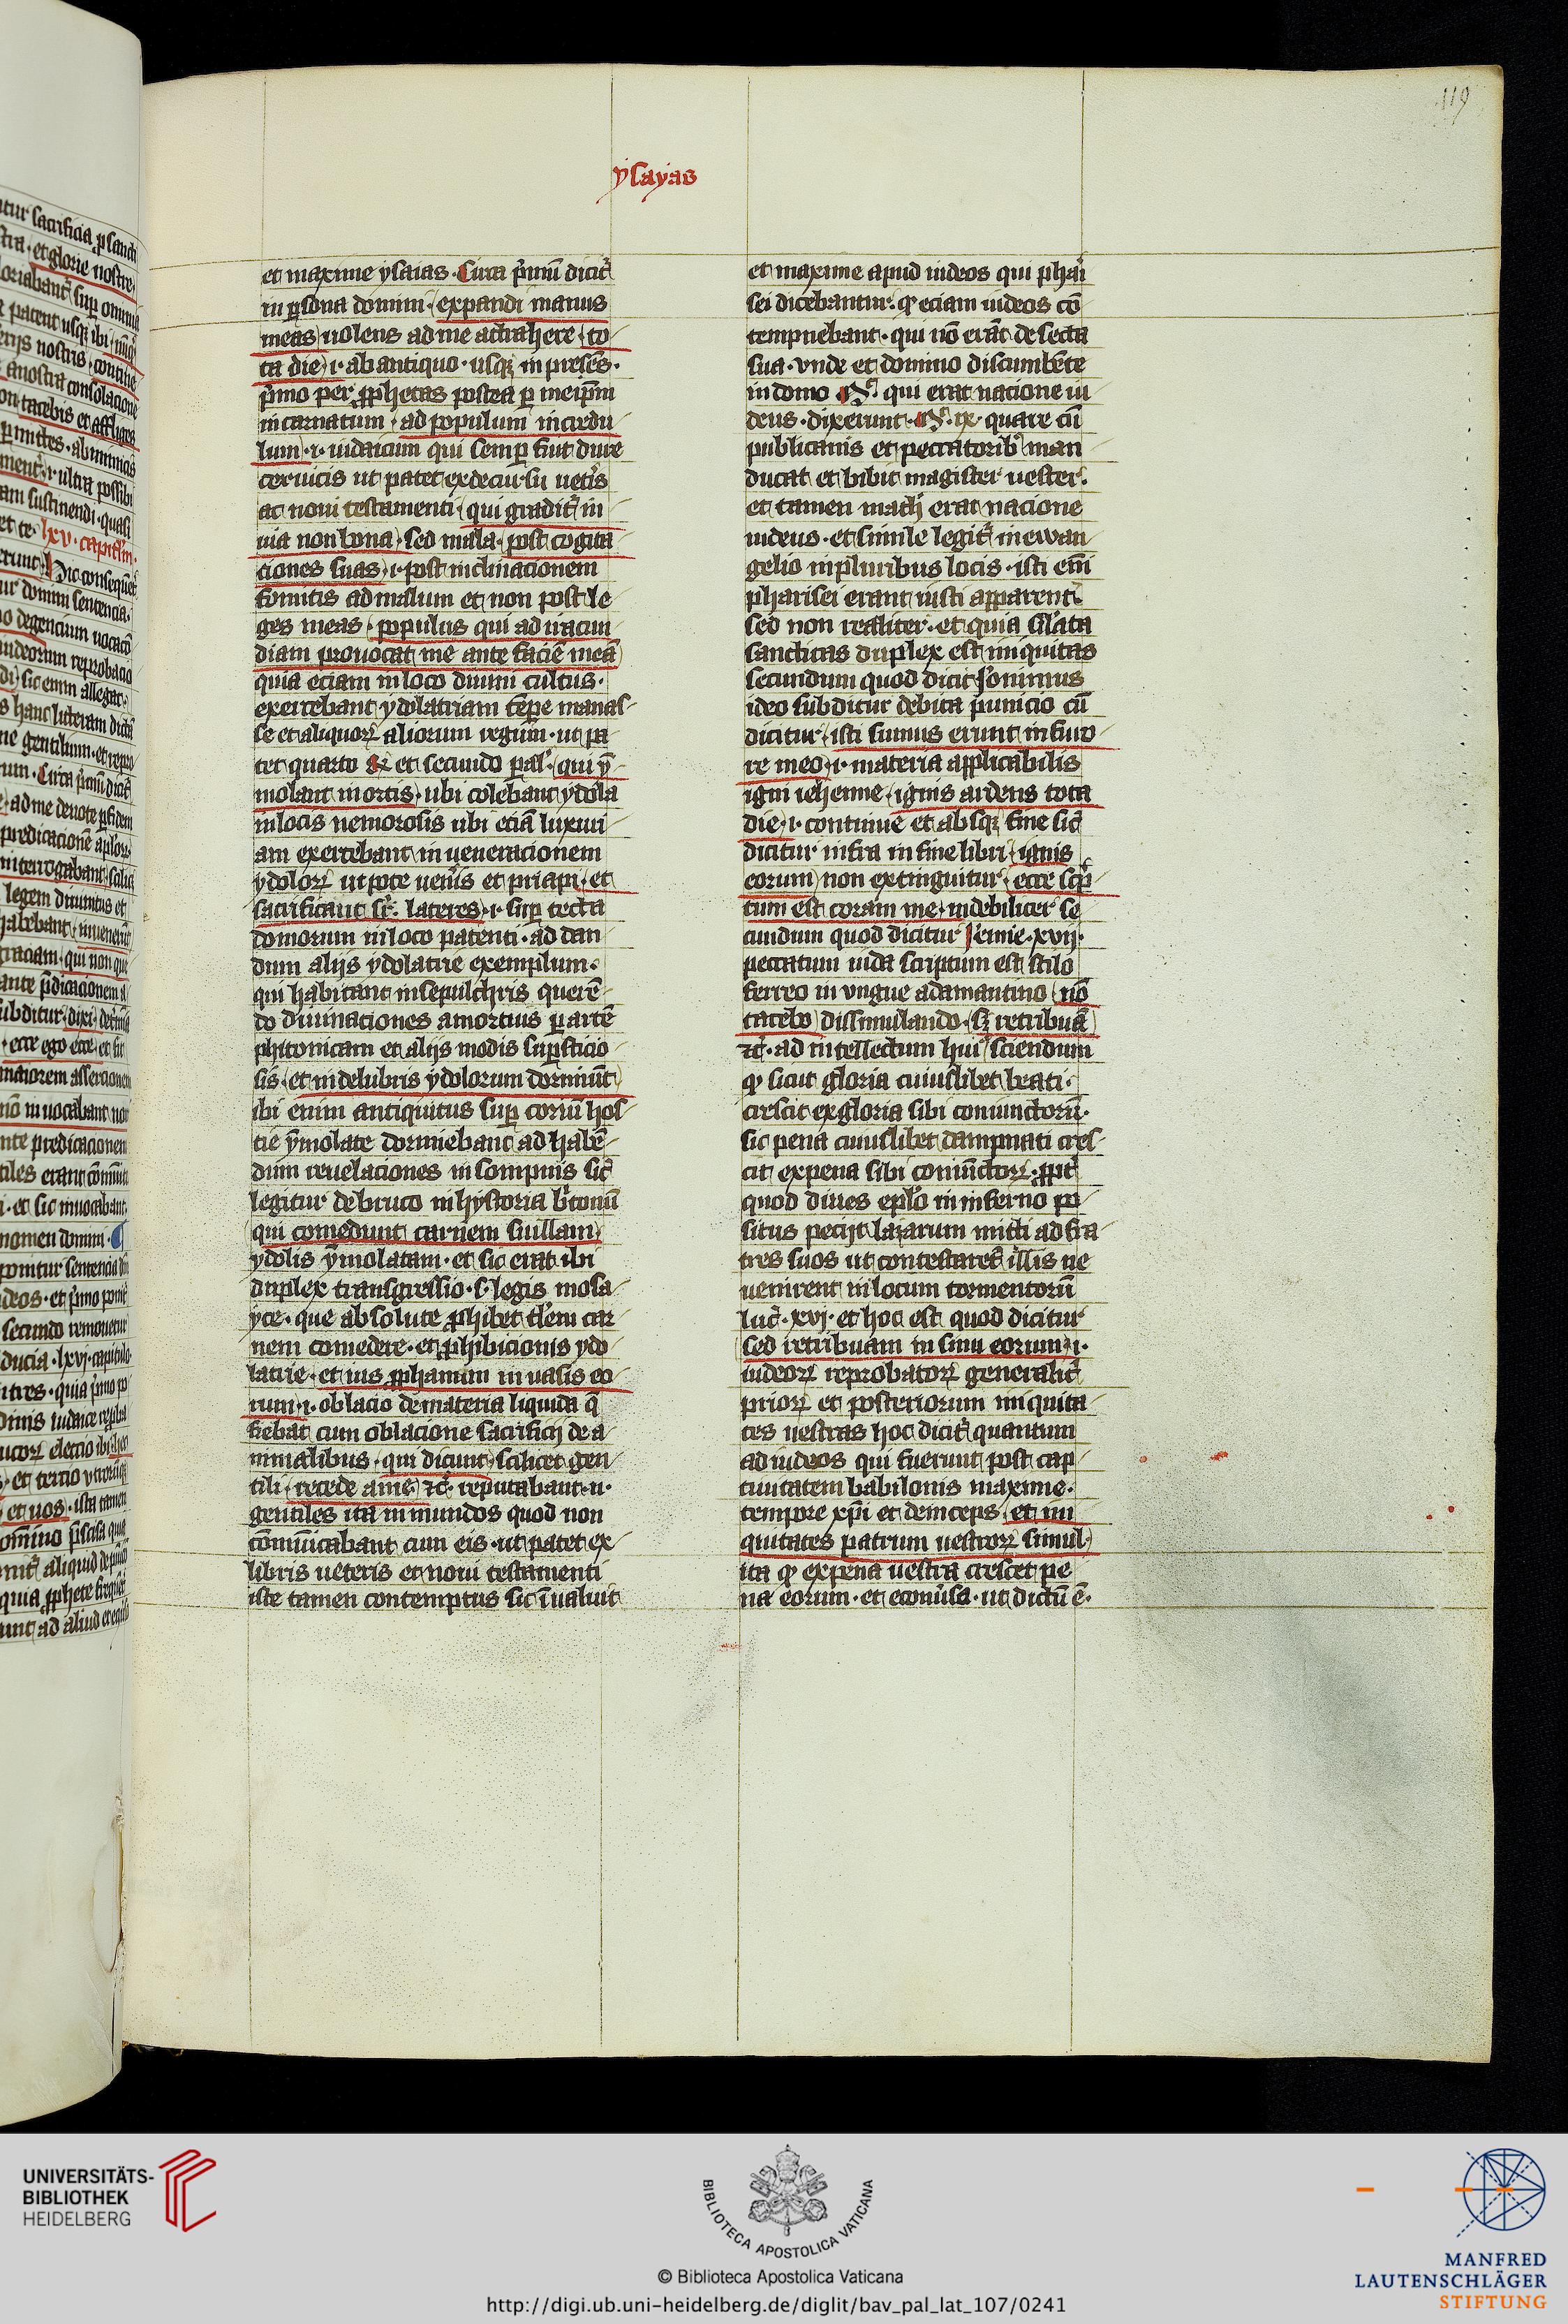 119
ysayas
et maxime ysaias. Circa p̄mū dicit̄
in ꝑsona domini. expandi manus
meas uolens ad me attrahere. to
ta die .i. ab antiquo. usqꝫ in presēs.
p̄mo per ꝓphetas postea ꝑ meip̄m
incarnatum. ad populum incredu
lum .i. iudaicum qui semꝑ fuit dure
ceruicis ut patet ex decursu uet̄is
ac noui testamenti. qui gradit̄ in
uia non bona. sed mala. post cogita
ciones suas .i. post inclinacionem
fomitis ad malum et non post le
ges meas. populus qui ad iracun
diam prouocat me ante faciē meā
quia eciam in loco diuini cultus.
exercebant ydolatriam tēpe manas
se et aliquoꝝ aliorum regum. ut pa
tet quarto R̄ et secundo pal̄. qui ȳ
molant in ortis. ubi colebant ydola
in locis nemorosis ubi eciā luxuri
am exercebant in ueneracionem
ydoloꝝ utpote uen̄is et priapi. et
sacrificant sr̄. lateres .i. suꝑ tecta
domorum in loco patenti. ad dan
dum alijs ydolatrie exemplum.
qui habitant in sepulchris querē
do diuinaciones a mortuis ꝑ artē
phitonicam et alijs modis suꝑsticio
sis. et in delubris ydolorum dormiūt
ibi enim antiquitus suꝑ coriū hos
tie ȳmolate dormiebant ad habē
dum reuelaciones in sompnis sic̄
legitur de bruto in hystoria b̄tonū
qui comedunt carnem suillam
ydolis ȳmolatam. et sic erat ibi
duplex transgressio. s. legis mosa
yce. que absolute ꝓhibet tl̄em car
nem comedere. et ꝓhibicionis ydo
latrie. et ius ꝓphanum in uasis eo
rum .i. oblacio de materia liquida q̄
fiebat cum oblacione sacrificij de a
nimalibus. qui dicunt scilicet gen
tili. recede a me. ⁊c̄. reputabant. n.
gentiles ita inmundos quod non
com̄unicabant cum eis. ut patet ex
libris ueteris et noui testamenti
iste tamen contemptus sic īualuit
et maxime apud iudeos qui phari
sei dicebantur. ꝙ eciam iudeos cō
tempnebant. qui nō erāt de secta
sua. vnde et domino discumbēte
in domo M̄. qui erat nacione iu
deus. dixerunt. M̄. ix. quare cū
publicanis et peccatorib⁹ man
ducat et bibit magister uester.
et tamen math̄ erat nacione
iudeus. et simile legit̄ in ewan
gelio in pluribus locis. isti em̄
pharisei erant iusti apparent̄
sed non realiter. et quia sil̄ata
sanctitas duplex est iniquitas
secundum quod dicit Jeronimus
ideo subditur debita punicio cū
dicitur. isti fumus erunt in furo
re meo .i. materia applicabilis
igni iehenne. ignis ardens tota
die .i. continue et absqꝫ fine sic̄
dicitur infra in fine libri. ignis
eorum non extinguitur. ecce scp̄
tum est coram me. indebiliter se
cundum quod dicitur Jeremie. xvij.
peccatum iuda scriptum est stilo
ferreo in vngue adamantino. nō
tacebo dissimulando. sꝫ retribuā
⁊c̄. ad intellectum hui⁹ sciendum
ꝙ sicut gloria cuiuslibet beati.
crescit ex gloria sibi coniunctorū.
sic pena cuiuslibet dampnati cres
cit ex pena sibi coniūctoꝝ. ꝓpt̄
quod diues epl̄o in inferno po
situs petijt lazarum mitti ad fra
tres suos ut contestaret̄ illis ne
uenirent in locum tormentorū
luc̄. xvj. et hoc est quod dicitur
sed retribuam in sinu eorum .i.
iudeoꝝ reprobatoꝝ generalit̄
prioꝝ et posteriorum iniquita
tes uestras hoc dicit̄ quantum
ad iudeos qui fuerunt post cap
tiuitatem babilonis maxime.
tempore xp̄i et deinceps. et ini
quitates patrum uestroꝝ simul.
ita ꝙ ex pena uestra crescet pe
na eorum. et econūso. ut dictū ē.
UNIVERSITÄTS-
BIBLIOTHEK
HEIDELBERG
BIBLIOTECA APOSTOLICA VATICANA
© Biblioteca Apostolica Vaticana
http://digi.ub.uni-heidelberg.de/diglit/bav_pal_lat_107/0241
MANFRED
LAUTENSCHLÄGER
STIFTUNG